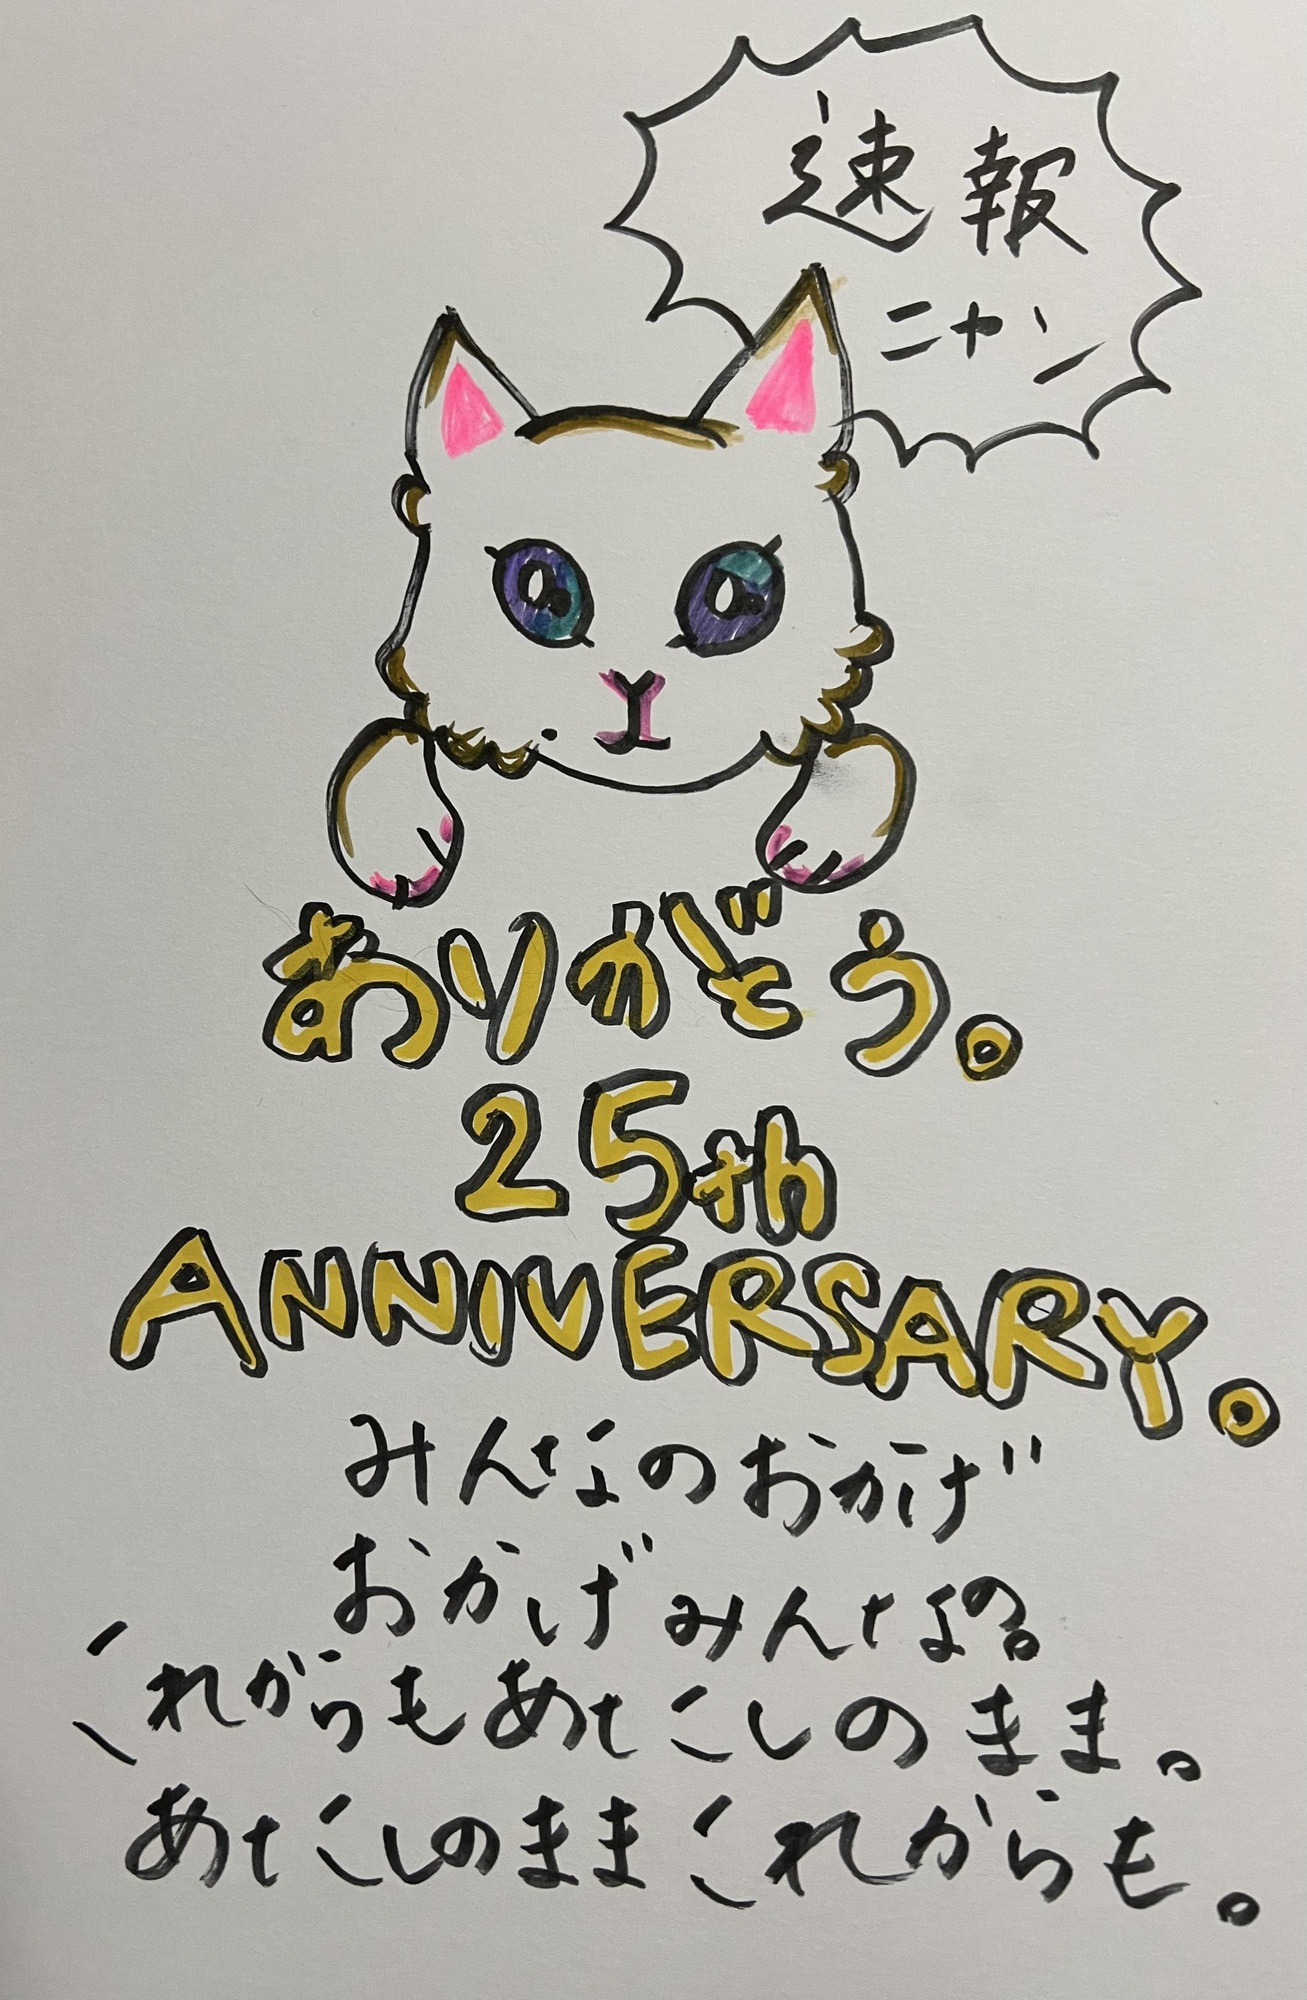 速報
ニャン
ありがとう。
25th
ANNIVERSARY.
みんなのおかげ
おかげみんなの。
これからもあたしのまま。
あたしのままこれからも。